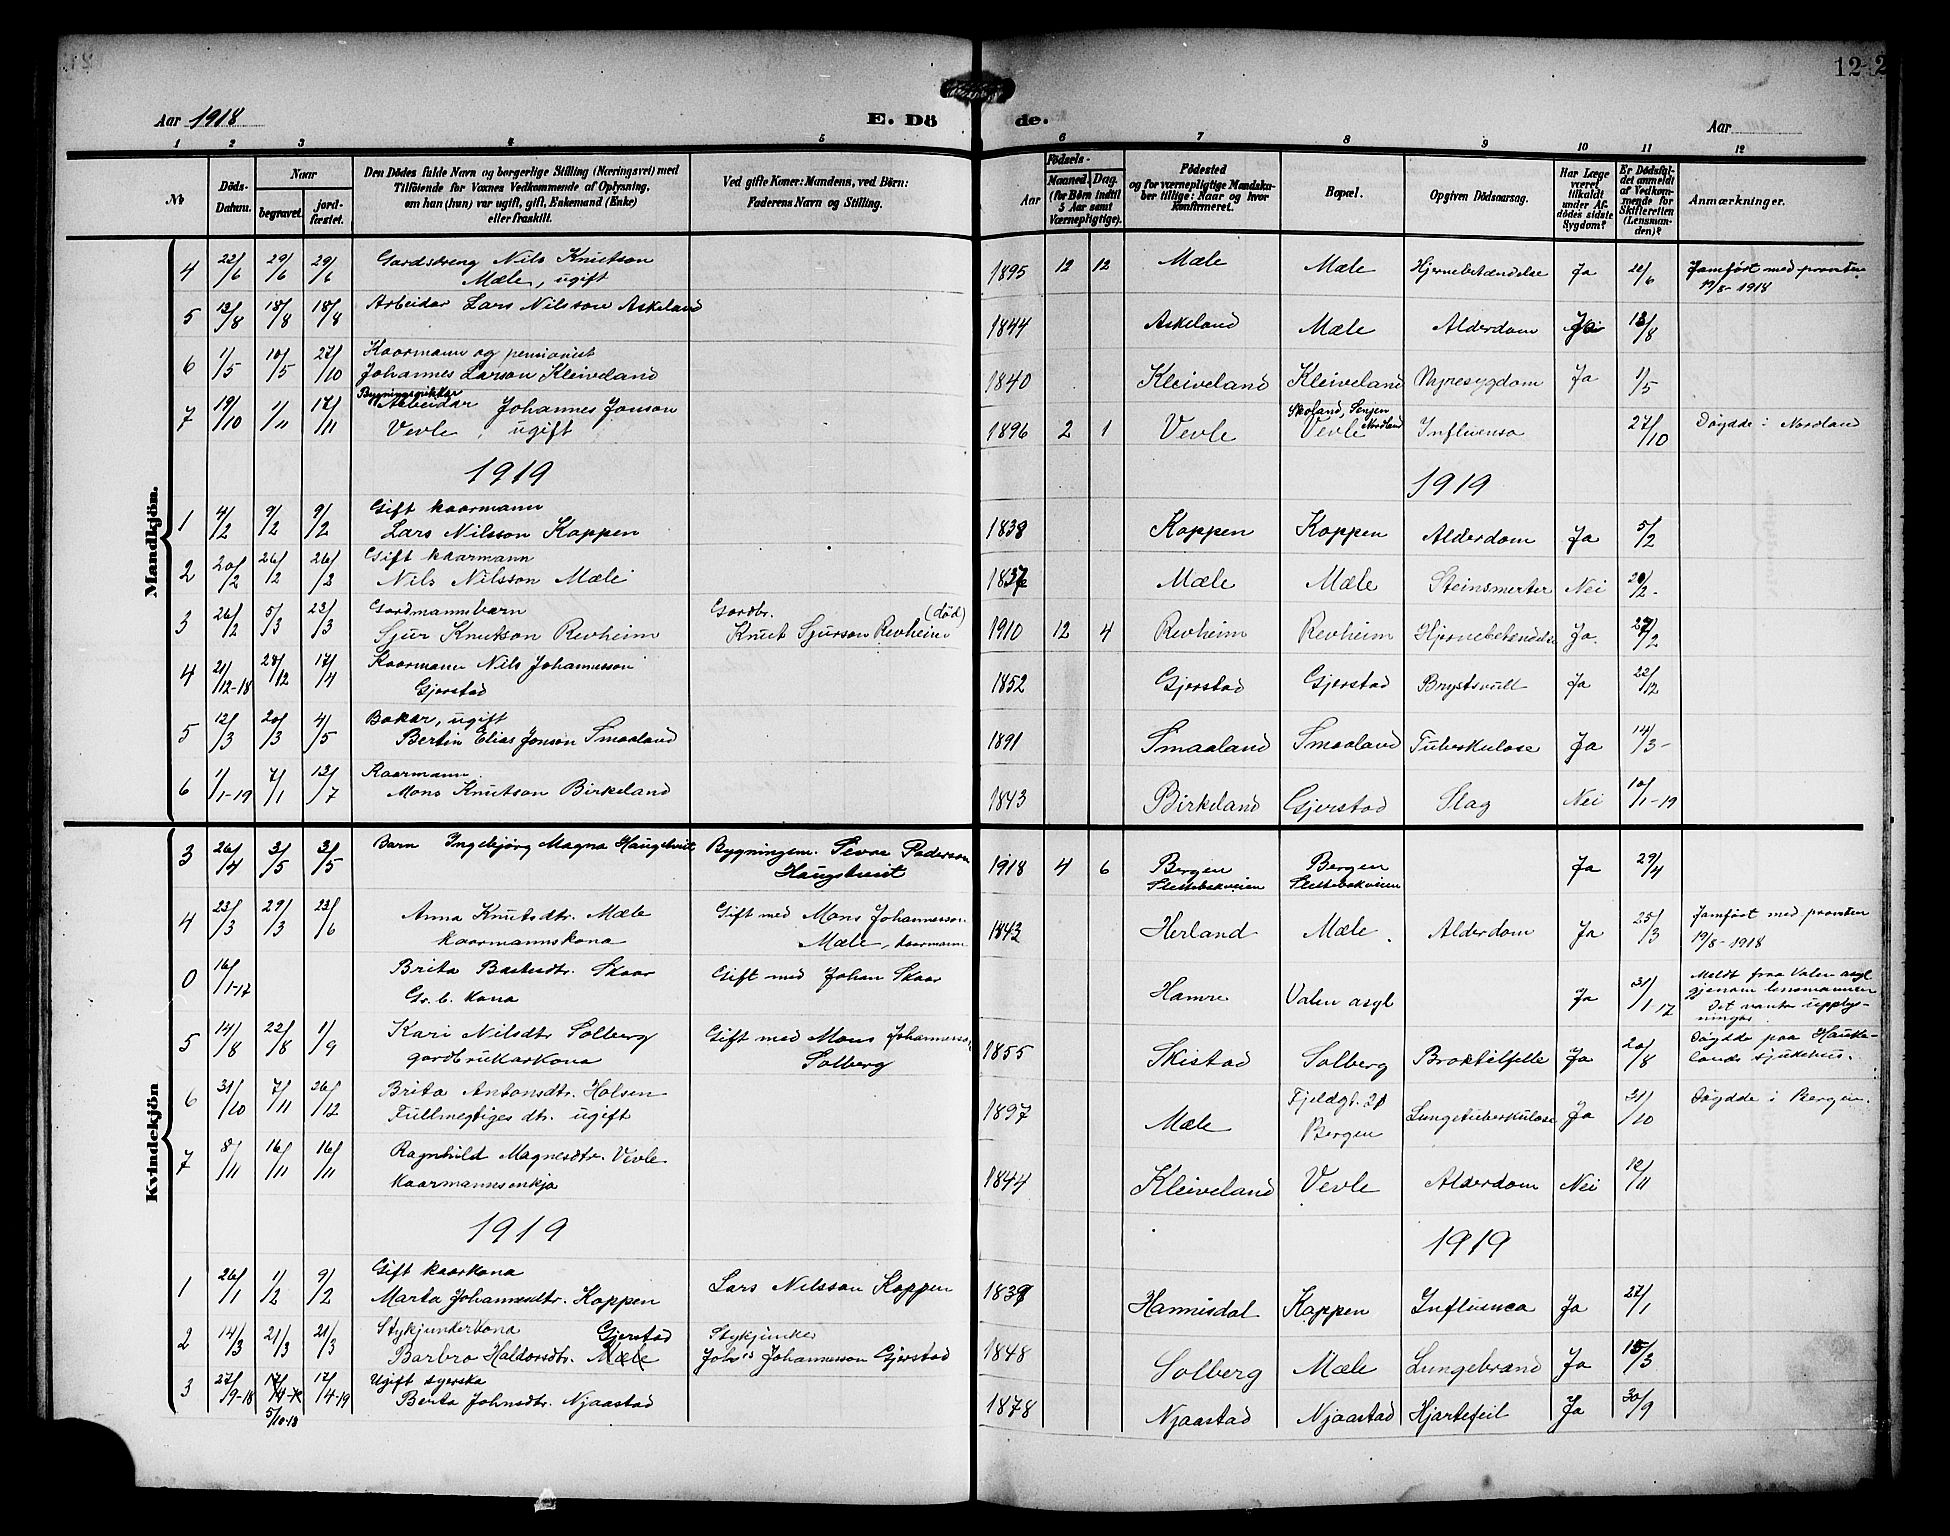 122
Aar 1918
E. Döde.
Aar
1 2 3 4 5 6 7 8 9 10 11 12
No
Döds-Datum.
Naar
begravet.
jordfæstet.
Den Dödes fulde Navn og borgerlige Stilling (Næringsvei) med
Tilföiende for Voxnes Vedkommende af Oplysning,
om han (hun) var ugift, gift, Enkemand (Enke)
eller fraskilt.
Ved gifte Koner: Mandens, ved Börn:
Faderens Navn og Stilling.
Födsels-
Aar
Maaned. Dag.
(for Börn indtil
5 Aar samt
Værnepligtige).
Födested
og for værnepligtige Mandskaber tillige: Naar og hvor
konfirmeret.
Bopæl.
Opgiven Dödsaarsag.
Har Læge været tilkaldt under Afdödes sidste Sygdom?
Er Dödsfaldet anmeldt af Vedkommende for Skifteretten (Lensmanden)?
Anmærkninger.
Mandkjön.
4 22/6 29/6 29/6 Gardstreng Nils Knutson
Mæle, ugift 1895 12 12 Mæle Mæle Hjernebetændelse Ja /6 Jamført med prosten
19/8-1918
5 13/8 18/8 18/8 Arbeidar Lars Nilsson Askeland 1844 Askeland Mæle Alderdom 13/8
6 1/5 10/5 27/10 Kaarmann og pensionist
Johannes Larson Kleiveland 1840 Kleiveland Kleiveland Nyresygdom Ja 1/5
7 19/10 1/11 17/11 Arbeidar Johannes Jonson
Vevle, ugift 1896 2 1 Vevle Skoland, Senjen
Vevle Nordland Influensa 27/10 Døydde i Nordland
1919 1919
1 4/2 9/2 9/2 Gift kaarmann
Lars Nilsson Koppen 1838 Koppen Koppen Alderdom Ja 5/2
2 20/2 26/2 26/2 Gift kaarmann
Nils Nilsson Mæle 1837 Mæle Mæle Steinsmerter Nei 20/2-
3 26/2 5/3 23/3 Gardmannsbarn
Sjur Knutson Revheim Gardbr. (død)
Knut Sjurson Revheim 1910 12 4 Revheim Revheim Hjernebetendelse Ja. 27/2
4 21/12-18 28/12 17/4 Kaarmann Nils Johannesson
Gjerstad 1852 Gjerstad Gjerstad Brystsvull Ja 22/12
5 12/3 20/3 4/5 Bakar, ugift
Bertin Elias Jonson Smaaland 1891 Smaaland Smaaland Tuberkulose Ja 14/3-
6 1/1-19 7/1 13/7 Kaarmann
Mons Knutson Birkeland 1843 Birkeland Gjerstad Slag Nei 10/1-19
Kvindekjön
3 26/4 3/5 3/5 Barn Ingebjørg Magna Haugstveit Bygningsm. Sevat Pederson
Haugstveit 1918 4 6 Bergen
Slettebakveien Bergen
Slettebakveien Ja 29/4
4 23/3 29/3 23/6 Anna Knutsdtr. Mæle
kaarmannskona Gift med Mons Johannesson
Mæle, kaarmann 1843 Herland Mæle Alderdom Ja 25/3 Jamført med prosten
19/8-1918
0 16/1-17 Brita Skaar
Gr. b. kona Gift med Johan Skaar Hamre Valen asyl Ja 31/1 17 Meldt fraa Valen asyl
gjenom lensmannen
Det vantar upplysningar.
5 14/8 22/8 1/9 Kari Nilsdtr Solberg
gardbrukarkona Gift med Mons Johannesson
Solberg 1855 Skistad Solberg Broktilfelle Ja 20/8 Døydde paa Haukelands sjukehus.
6 31/10 7/11 26/12 Brita Antonsdtr. Holsen
Fullmegtiges dtr. ugift 1897 Mæle Fjeldgt. 21
Bergen Lungetuberkulose Ja 31/10 Døydde i Bergen.
7 8/11 16/11 16/11 Ragnhild Magnesdtr. Vevle
kaarmannsenkja 1844 Kleiveland Vevle Alderdom Nei 12/11
1919 1919
1 26/1 1/2 9/2 Gift kaarkona
Marta Johannesdtr. Koppen Lars Nilsson Koppen 1839 Hannisdal Koppen Influensa Ja 27/1
2 14/3 21/3 21/3 Stykjunkerkona Gjerstad
Barbro Haldorsdtr. Mæle Stykjunker
Johs Johannesson Gjerstad 1848 Solberg Mæle Lungebrand Ja 15/3
3 27/9-18 17/4 17/4-19 Ugift syerska
5/10-18 Berta Johnsdtr. Njaastad 1878 Njaastad Njaastad Hjartefeil Ja 30/9